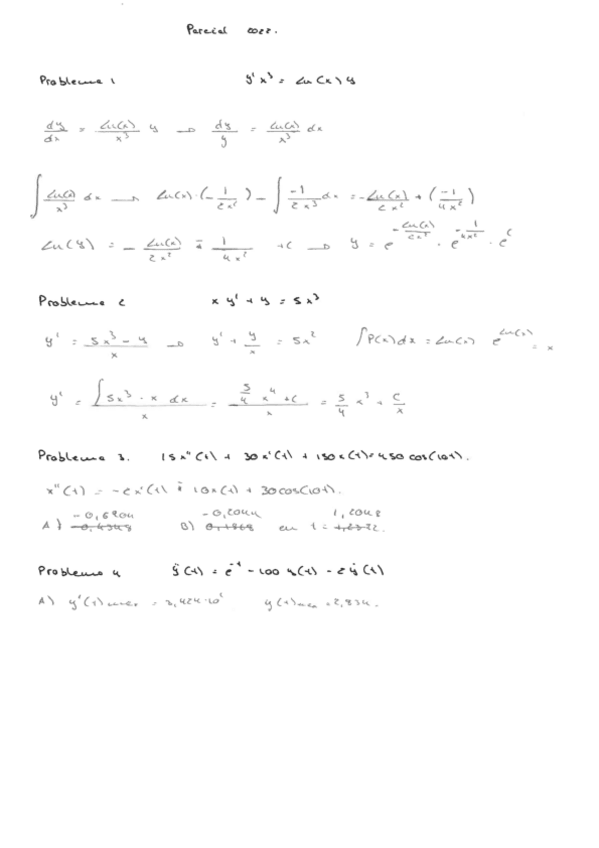 Parcial 2022.
Problema 1 y' x³ = Ln(x) y
dy/dx = Ln(x)/x³ y → dy/y = Ln(x)/x³ dx
∫ Ln(x)/x³ dx → Ln(x)·(-1/2x²) - ∫ -1/2x³ dx = -Ln(x)/2x² + (-1/4x²)
Ln(y) = - Ln(x)/2x² - 1/4x² + C → y = e^(-Ln(x)/2x²) · e^(-1/4x²) · e^C
Problema 2 x y' + y = 5x³
y' = (5x³ - y)/x → y' + y/x = 5x² ∫P(x)dx = Ln(x) e^(Ln(x)) = x
y' = (∫5x³ · x dx)/x = (5/4 x⁴ + C)/x = 5/4 x³ + C/x
Problema 3. 15x''(t) + 30x'(t) + 150x(t) = 450 cos(10t).
x''(t) = -2x'(t) - 10x(t) + 30cos(10t).
-0,6204 -0,2044 1,2048
A) B) en t =
Problema 4 ÿ(t) = e^-t - 100 y(t) - 2ẏ(t)
A) y'(t)max = y(t)max = 2,834.